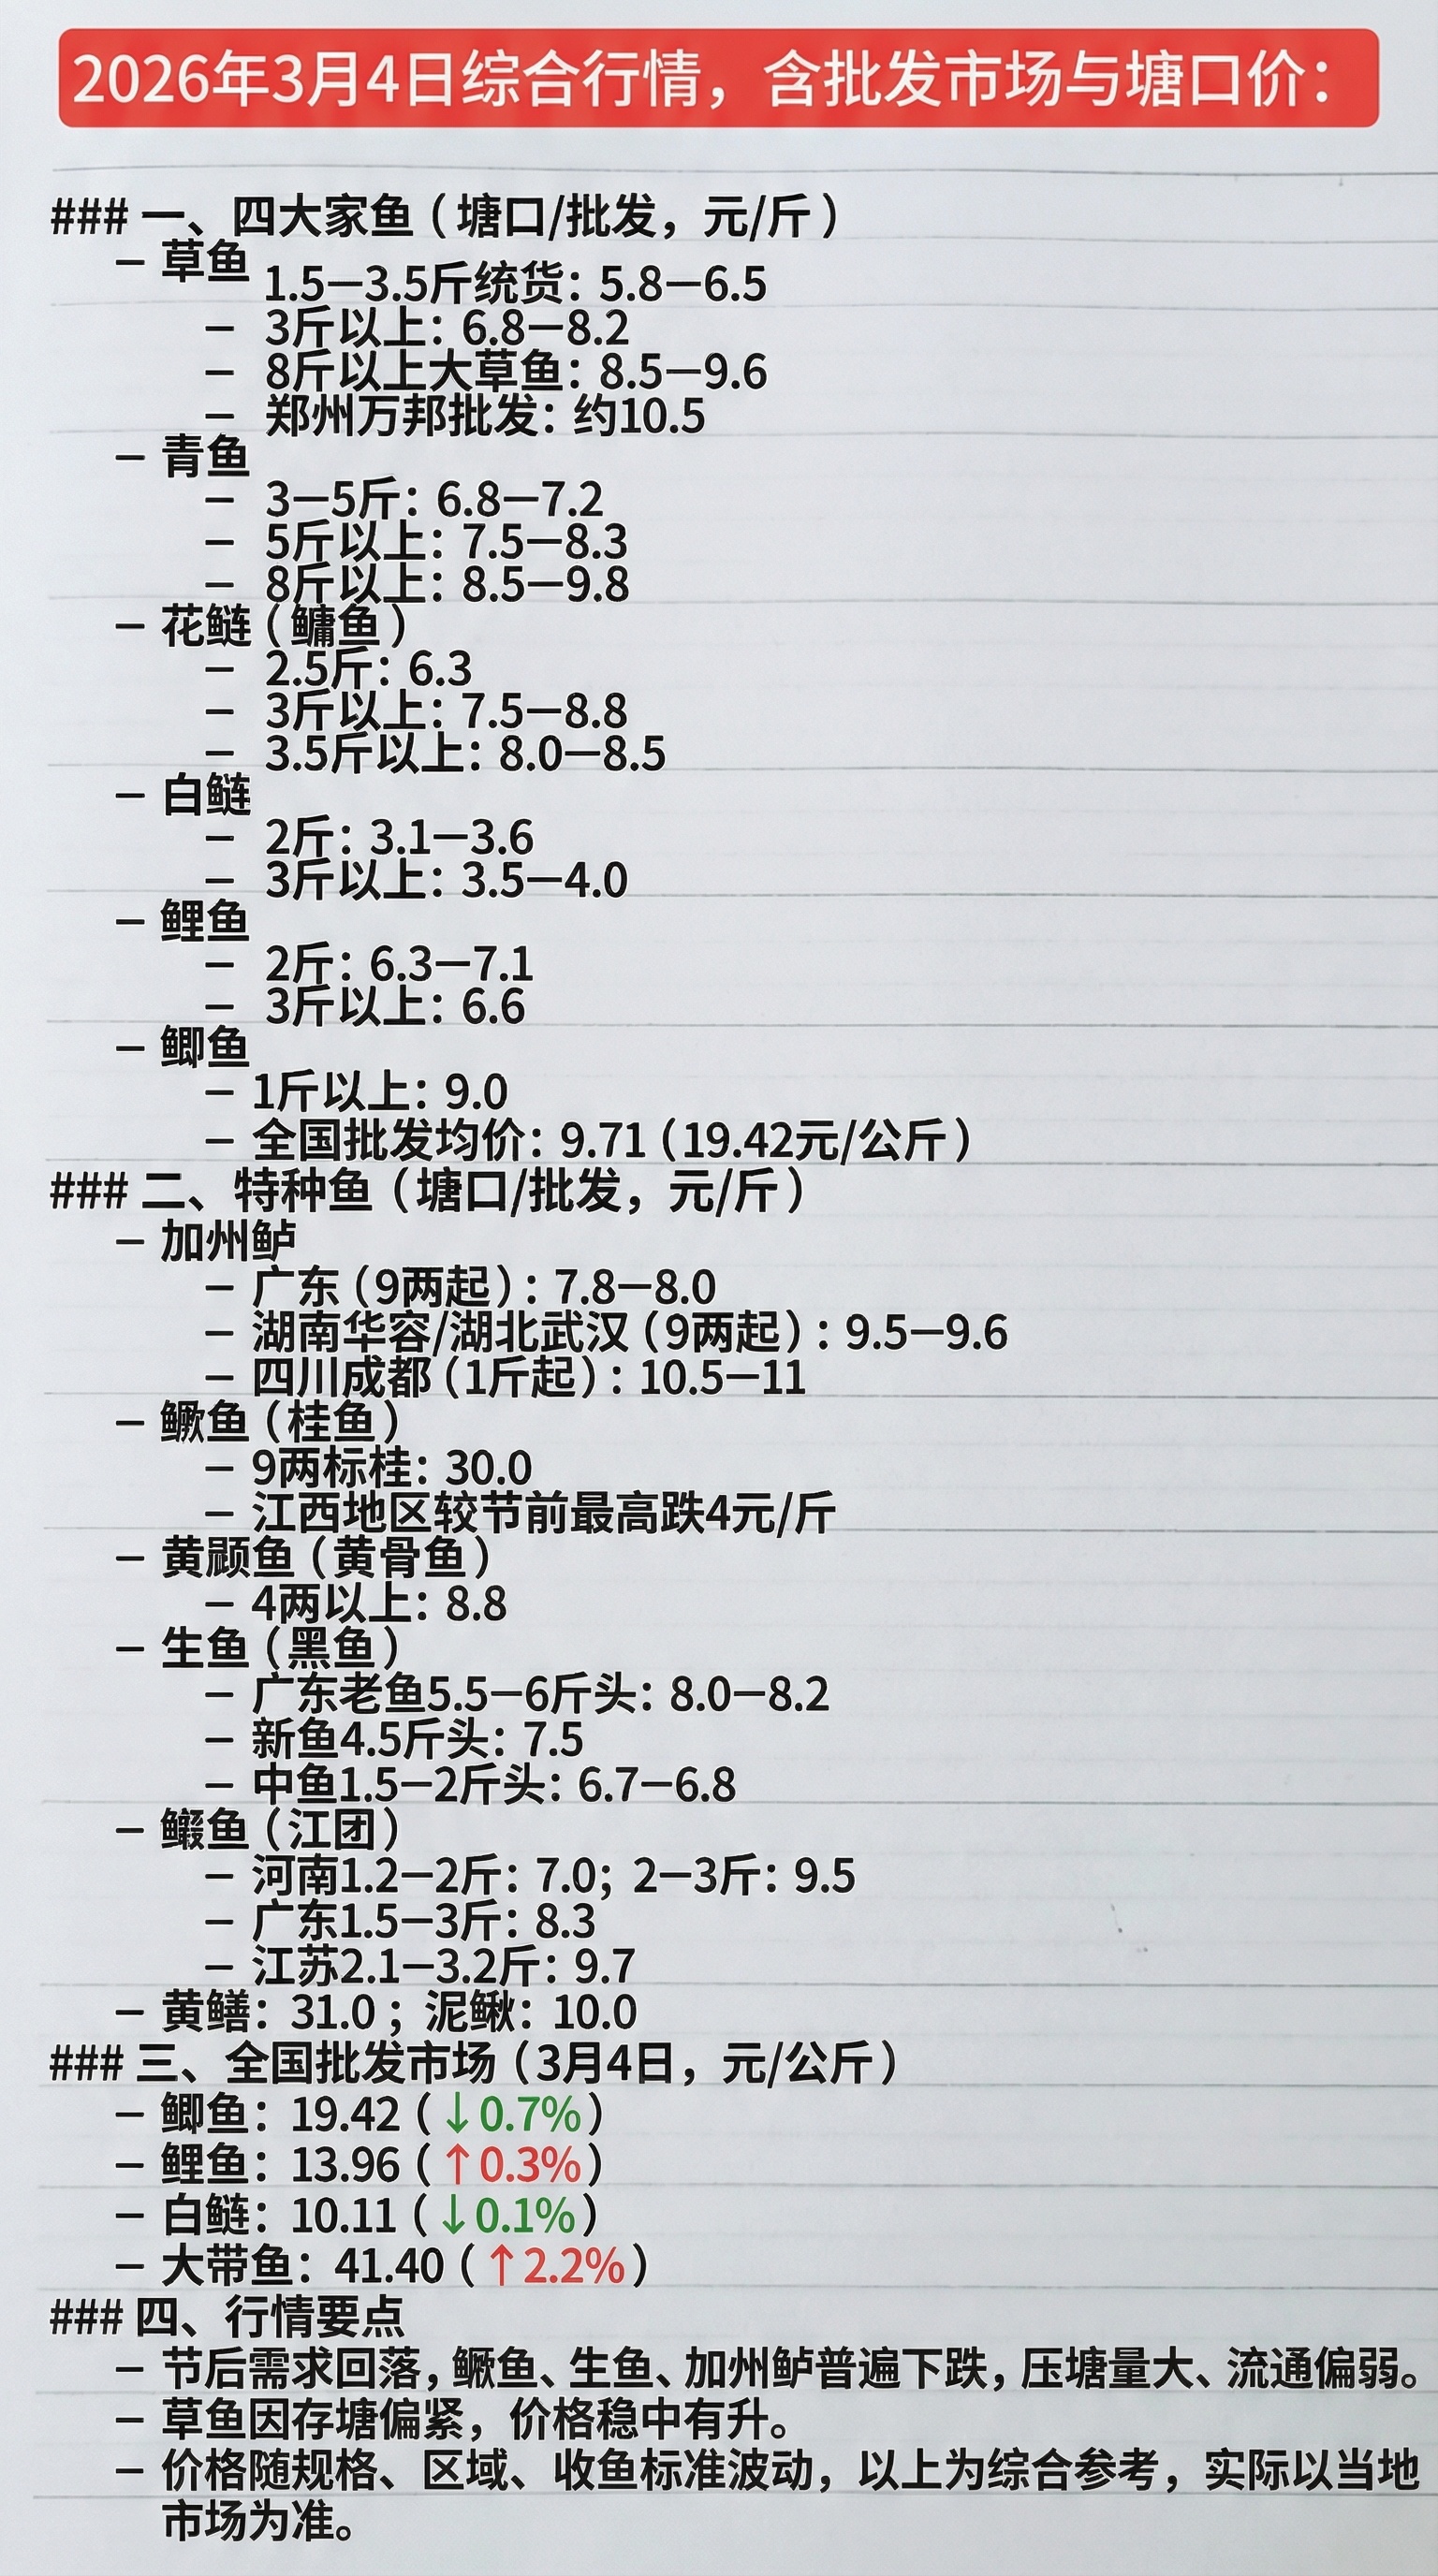 2026年3月4日综合行情，含批发市场与塘口价：
### 一、四大家鱼（塘口/批发，元/斤）
– 草鱼
1.5—3.5斤统货：5.8—6.5
– 3斤以上：6.8—8.2
– 8斤以上大草鱼：8.5—9.6
– 郑州万邦批发：约10.5
– 青鱼
– 3—5斤：6.8—7.2
– 5斤以上：7.5—8.3
– 8斤以上：8.5—9.8
– 花鲢（鳙鱼）
– 2.5斤：6.3
– 3斤以上：7.5—8.8
– 3.5斤以上：8.0—8.5
– 白鲢
– 2斤：3.1—3.6
– 3斤以上：3.5—4.0
– 鲤鱼
– 2斤：6.3—7.1
– 3斤以上：6.6
– 鲫鱼
– 1斤以上：9.0
– 全国批发均价：9.71（19.42元/公斤）
### 二、特种鱼（塘口/批发，元/斤）
– 加州鲈
– 广东（9两起）：7.8—8.0
– 湖南华容/湖北武汉（9两起）：9.5—9.6
– 四川成都（1斤起）：10.5—11
– 鳜鱼（桂鱼）
– 9两标桂：30.0
– 江西地区较节前最高跌4元/斤
– 黄顾鱼（黄骨鱼）
– 4两以上：8.8
– 生鱼（黑鱼）
– 广东老鱼5.5—6斤头：8.0—8.2
– 新鱼4.5斤头：7.5
– 中鱼1.5—2斤头：6.7—6.8
– 鱼（江团）
– 河南1.2—2斤：7.0；2—3斤：9.5
– 广东1.5—3斤：8.3
– 江苏2.1—3.2斤：9.7
– 黄鳝：31.0；泥鳅：10.0
### 三、全国批发市场（3月4日，元/公斤）
– 鲫鱼：19.42（↓0.7%）
– 鲤鱼：13.96（↑0.3%）
– 白鲢：10.11（↓0.1%）
– 大带鱼：41.40（↑2.2%）
### 四、行情要点
– 节后需求回落，鳜鱼、生鱼、加州鲈普遍下跌，压塘量大、流通偏弱。
– 草鱼因存塘偏紧，价格稳中有升。
– 价格随规格、区域、收鱼标准波动，以上为综合参考，实际以当地
市场为准。